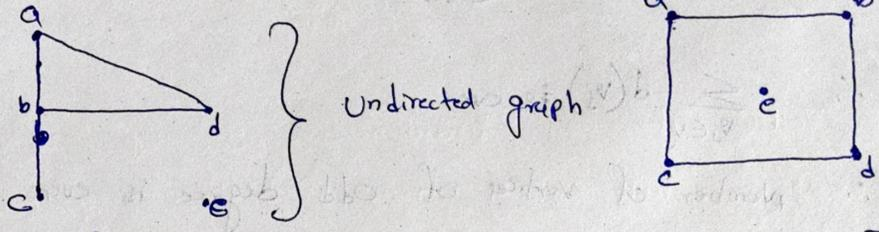 a
b
d
c
e
Undirected graph
a
b
e
c
d